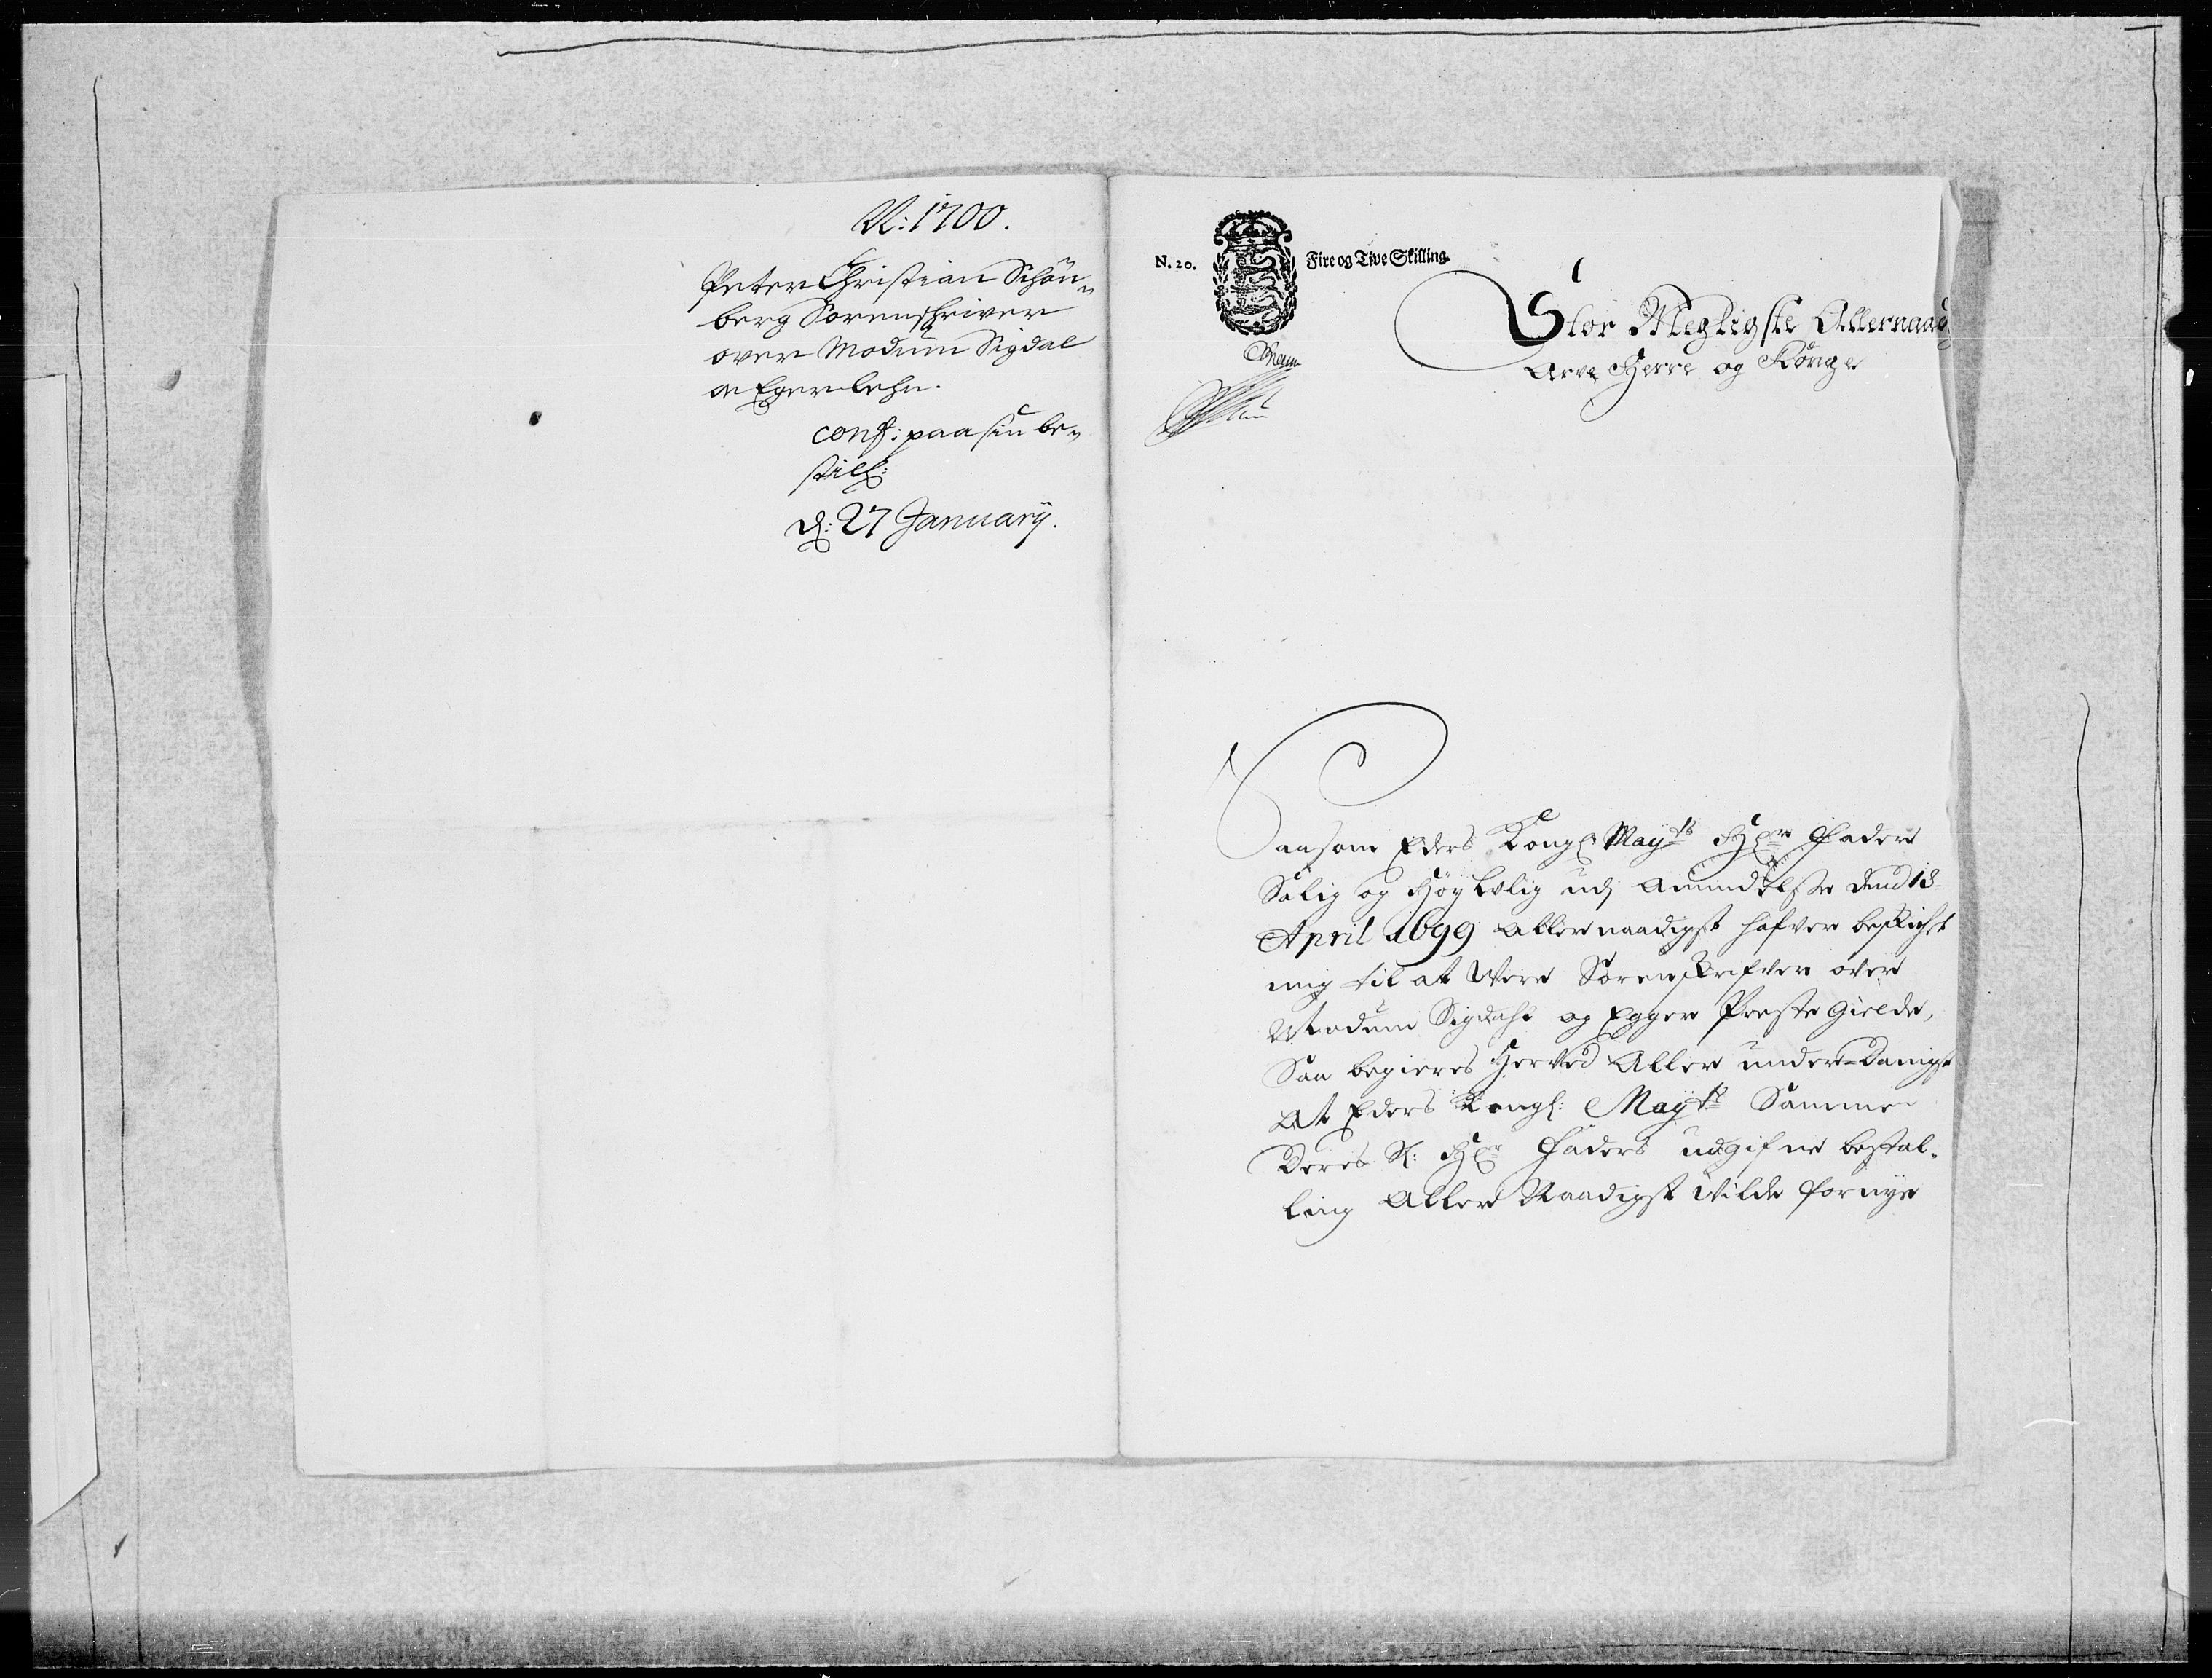 N: 1700.
Peter Christian Schön-
berg Sorenschriver
over Modum Sigdal
oc Eger lehn.
conf: paa sin be-
still:
d: 27 Januarij.
N. 20. Fire og Tive Skilling.
Stor Megtigste Allernaad
Arve Herre og Konge
Saasom Eders Kongl Mayts Hr Fader
Salig og Høyloflig udj Amindelse dend 18
April 1699 allernaadigst hafver beskicht
mig til at Were Sorenskrifver over
Modum Sigdahl og Egger Preste Gielde,
Saa begieres herved Aller under-Danigst
At Eders Kongl: Mayts Samme
Deres S: Hr Faders udgifne bestal-
ling Aller Naadigst Vilde fornye